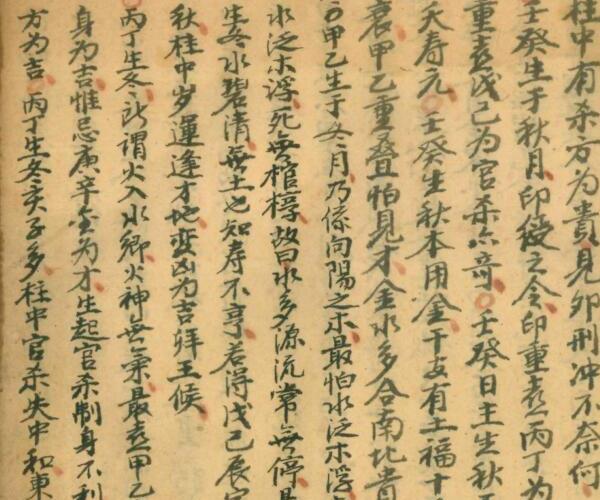 柱中有杀方为貴見卯刑冲不奈何
壬癸生于秋月印綬之令印重喜丙丁为
重喜戊己为官杀亦奇○壬癸日主生秋
夭寿元○壬癸生秋本用金干支有土福十
衰甲乙重叠怕見才金水多合南北貴
○甲乙生于冬月乃係向陽之木最怕水泛木浮
水泛木浮死無棺槨故曰水多源流常無停
生冬水碧清無土也知寿不亨若得戊己辰
秋柱中岁運逢才地変凶为吉拜王候
○丙丁生冬所謂火入水鄉火神無氣最喜甲乙
身为吉惟忌庚辛金为才生起官杀制身不利
方为吉○丙丁生冬亥子多柱中官杀失中和東